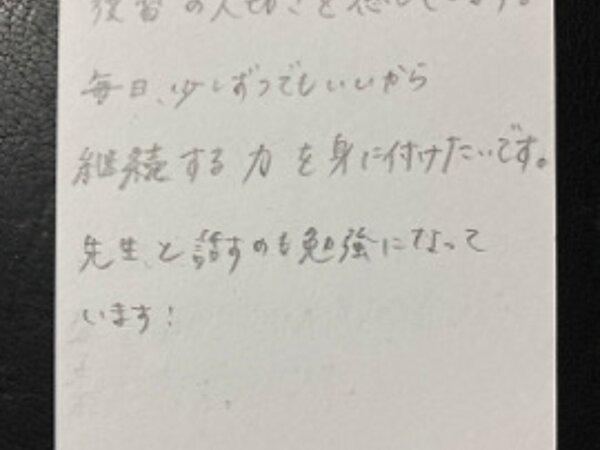 復習の大切さを感じています。
毎日、少しずつでもいいから
継続する力を身に付けたいです。
先生と話すのも勉強になって
います！